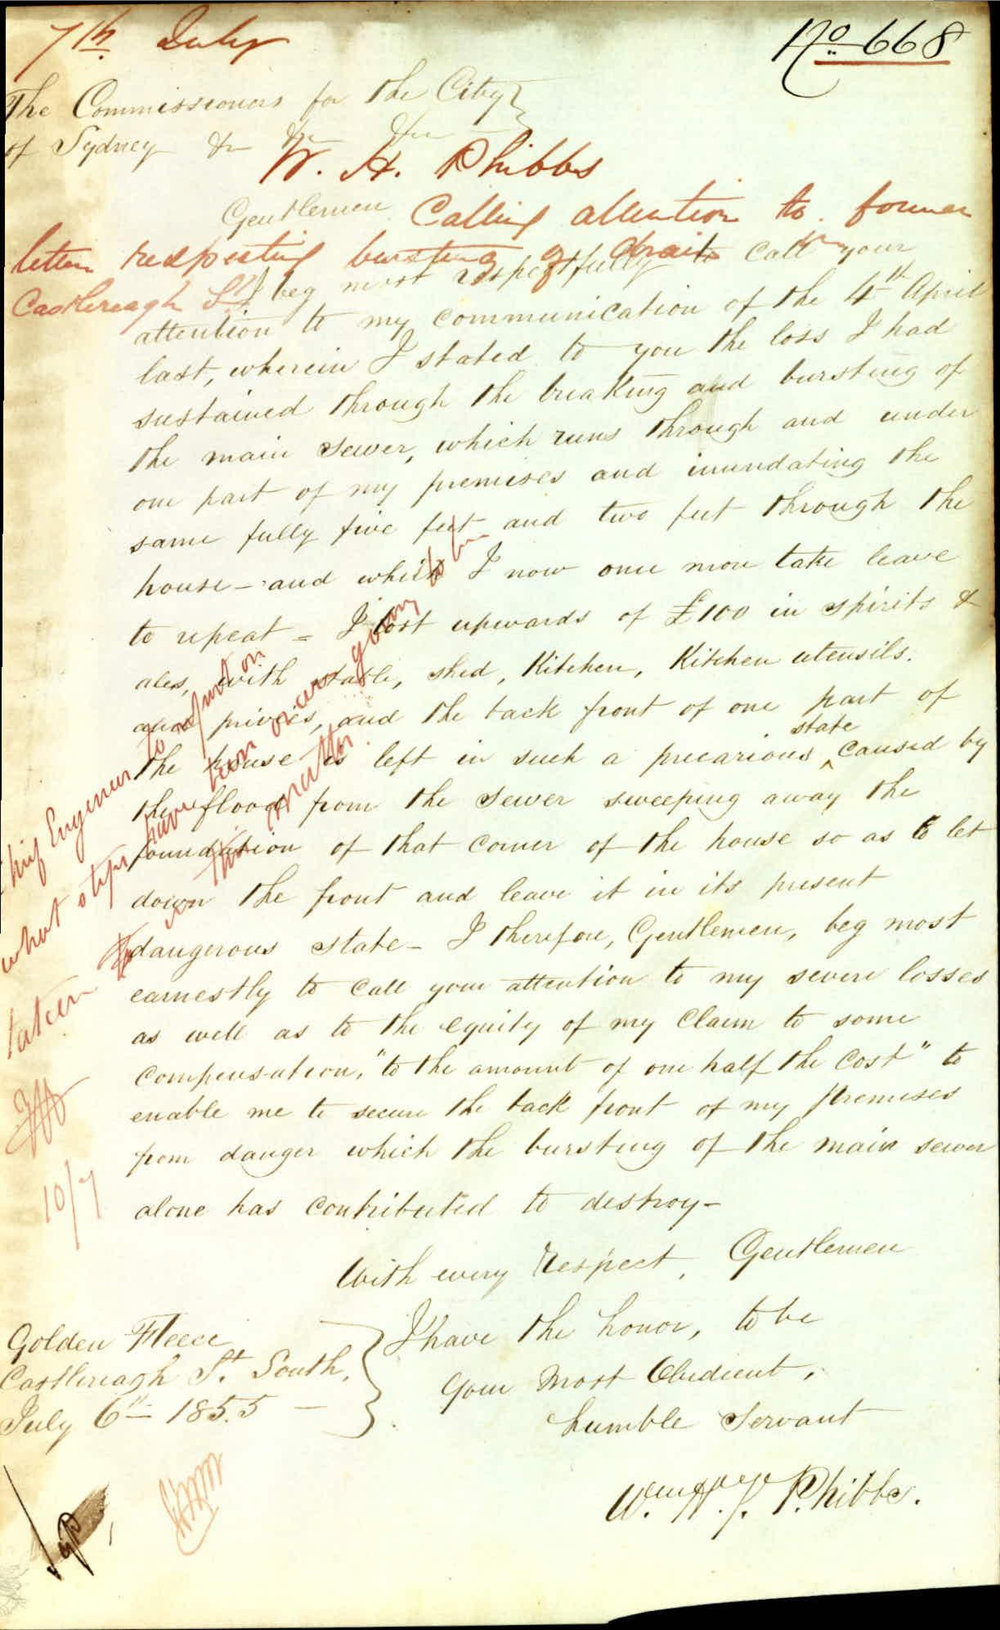 7th July
No 668
The Commissioners for the City
of Sydney &c &c &c
W. H. Phibbs
Gentlemen
Calling attention to former
letter respecting bursting of drain in
Castlereagh St
I beg most respectfully to call your
attention to my communication of the 4th April
last, wherein I stated to you the loss I had
sustained through the breaking and bursting of
the main sewer, which runs through and under
one part of my premises and inundating the
same fully five feet and two feet through the
house – and which I now once more take leave
to repeat – I lost upwards of £100 in spirits &
ales, with stable, shed, Kitchen, Kitchen utensils.
and privies, and the back front of one part of
the house is left in such a precarious state caused by
the flood from the sewer sweeping away the
foundation of that corner of the house so as to let
down the front and leave it in its present
dangerous state – I therefore, Gentlemen, beg most
earnestly to call your attention to my severe losses
as well as to the equity of my claim to some
compensation, "to the amount of one half the cost" to
enable me to secure the back front of my premises
from danger which the bursting of the main sewer
alone has contributed to destroy –
With every respect, Gentlemen
I have the honor, to be
Your Most Obedient,
humble Servant
Wm. H. J. Phibbs.
Golden Fleece
Castlereagh St. South,
July 6th 1855 –
Chief Engineer to report on
what steps have been
taken in this matter.
10/7